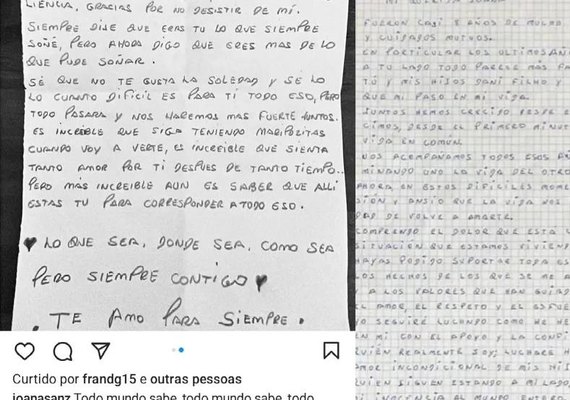 LIENCIA, GRACIAS POR NO DESISTIR DE MÍ.
SIEMPRE DIJE QUE ERAS TU LO QUE SIEMPRE
SOÑÉ, PERO AHORA DIGO QUE ERES MAS DE LO
QUE PUDE SOÑAR.
SÉ QUE NO TE GUSTA LA SOLEDAD Y SE LO
LO CUANTO DIFICIL ES PARA TI TODO ESO, PERO
TODO PASARA Y NOS HAREMOS MAS FUERTE JUNTOS.
ES INCREIBLE QUE SIGA TENIENDO MARIPOZITAS
CUANDO VOY A VERTE, ES INCREIBLE QUE SIENTA
TANTO AMOR POR TI DESPUES DE TANTO TIEMPO..
PERO MÁS INCREIBLE AUN ES SABER QUE ALLI
ESTAS TU PARA CORRESPONDER A TODO ESO.
♥ LO QUE SEA, DONDE SEA, COMO SEA
PERO SIEMPRE CONTIGO ♥
. TE AMO PARA SIEMPRE .
Curtido por frandg15 e outras pessoas
joanasanz Todo mundo sabe, todo mundo sabe, todo
FUERON CASI 8 AÑOS DE MUCHO
Y CUIDADOS MUTUOS.
EN PARTICULAR LOS ULTIMOS AÑ
A TU LADO TODO PARECE MÁS FA
TÚ Y MIS HIJOS DANI FILHO Y
QUE MI PASO EN MI VIDA.
JUNTOS HEMOS CRECIDO DESDE E
CIMOS, DESDE EL PRIMERO MINUT
VIDA EN COMUN.
NOS ACOMPAÑAMOS TODOS ESOS AÑ
MINANDO UNO LA VIDA DEL OTRO
AHORA EN ESTOS DIFICILES MOME
SIÓN Y ANSIO QUE LA VIDA NOS
DAD DE VOLVE A AMARTE.
COMPRENDO EL DOLOR QUE ESTA
SITUACIÓN QUE ESTAMOS VIVIEN
HAYAS PODIDO SUPORTAR TODA ES
LOS HECHOS DE LOS QUE SE ME A
Y A LOS VALORES QUE HAN GUIAD
EL AMOR, EL RESPETO Y EL ESFUE
SEGUIRÉ LUCHANDO COMO HE HE
EN MI CON EL APOYO Y LA CONFI
QUIÉN REALMENTE SOY; LUCHARE H
AMOR INCONDICIONAL DE MIS HI
QUIEN SIGUEN ESTANDO A MI LADO,
INOCENCIA AL MUNDO ENTERO.